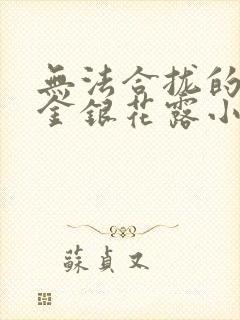 無法合拢的
金銀花露小
蘇貞又